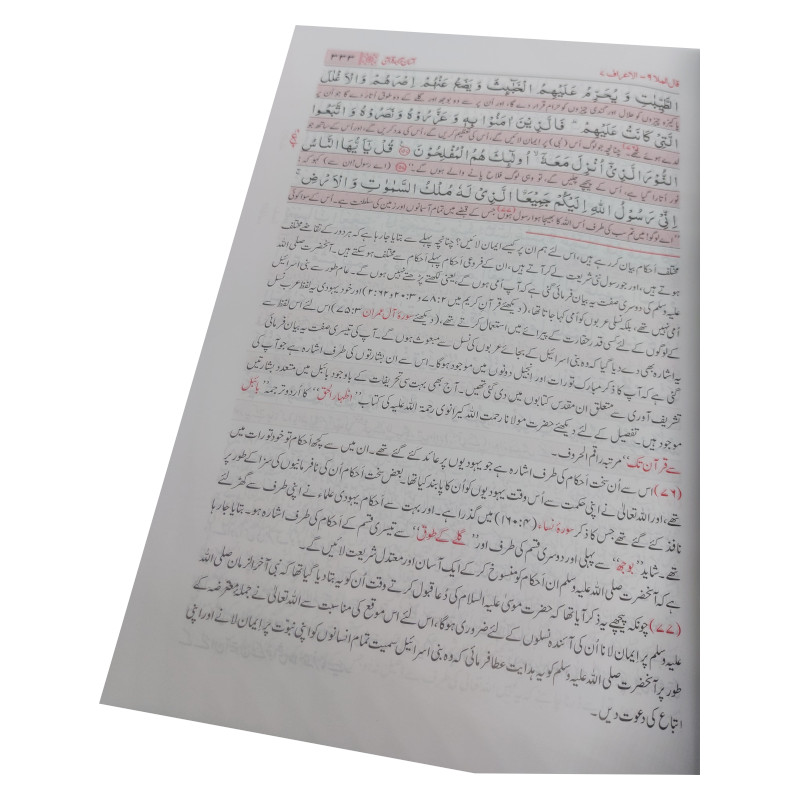 قال الملا ۹ - الاعراف ۷ آسان ترجمۂ قرآن ۳۳۳
الطَّيِّبٰتِ وَ يُحَرِّمُ عَلَيْهِمُ الْخَبٰٓئِثَ وَ يَضَعُ عَنْهُمْ اِصْرَهُمْ وَ الْاَغْلٰلَ
پاکیزہ چیزوں کو حلال اور گندی چیزوں کو حرام قرار دے گا، اور اُن پر سے وہ بوجھ اور گلے کے وہ طوق اُتار دے گا جو اُن پر
الَّتِيْ كَانَتْ عَلَيْهِمْ ؕ فَالَّذِيْنَ اٰمَنُوْا بِهٖ وَ عَزَّرُوْهُ وَ نَصَرُوْهُ وَ اتَّبَعُوا
لدے ہوئے تھے۔ چنانچہ جو لوگ اُس (نبی) پر ایمان لائیں گے، اُس کی تعظیم کریں گے، اُس کی مدد کریں گے، اور اُس کے ساتھ جو
النُّوْرَ الَّذِيْۤ اُنْزِلَ مَعَهٗۤ ۙ اُولٰٓئِكَ هُمُ الْمُفْلِحُوْنَ ۧ قُلْ يٰۤاَيُّهَا النَّاسُ
نور اُتارا گیا ہے، اُس کے پیچھے چلیں گے، تو وہی لوگ فلاح پانے والے ہوں گے۔“ (اے رسول! ان سے) کہو کہ:
اِنِّيْ رَسُوْلُ اللّٰهِ اِلَيْكُمْ جَمِيْعَا الَّذِيْ لَهٗ مُلْكُ السَّمٰوٰتِ وَ الْاَرْضِ ۚ
”اے لوگو! میں تم سب کی طرف اُس اللہ کا بھیجا ہوا رسول ہوں جس کے قبضے میں تمام آسمانوں اور زمین کی سلطنت ہے۔ اُس کے سوا کوئی
مختلف اَحکام بیان کر رہے ہیں، اس لئے ہم ان پر کیسے ایمان لائیں؟ چنانچہ پہلے سے بتایا جا رہا ہے کہ ہر دور کے تقاضے مختلف
ہوتے ہیں، اور جو رسول نئی شریعت لے کر آتے ہیں، ان کے فروعی اَحکام پہلے اَحکام سے مختلف ہو سکتے ہیں۔ آنحضرت صلی اللہ
علیہ وسلم کی دوسری صفت یہ بیان فرمائی گئی ہے کہ آپ اُمی ہوں گے، یعنی لکھتے پڑھتے نہیں ہوں گے۔ عام طور سے بنی اسرائیل
اُمی نہیں تھے، بلکہ نسلی عربوں کو اُمی کہا جاتا تھا، (دیکھئے قرآنِ کریم میں ۷۸:۲ و ۲۰:۳ و ۲:۶۲) اور خود یہودی یہ لفظ عرب نسل
کے لوگوں کے لئے کسی قدر حقارت کے پیرائے میں استعمال کرتے تھے، (دیکھئے سورۂ آلِ عمران ۷۵:۳) اس لئے اس لفظ سے
یہ اشارہ بھی دے دیا گیا کہ وہ بنی اسرائیل کے بجائے عربوں کی نسل سے مبعوث ہوں گے۔ آپ کی تیسری صفت یہ بیان فرمائی
گئی ہے کہ آپ کا ذکرِ مبارک تورات اور انجیل دونوں میں موجود ہوگا۔ اس سے ان بشارتوں کی طرف اشارہ ہے جو آپ کی
تشریف آوری سے متعلق ان مقدس کتابوں میں دی گئی تھیں۔ آج بھی بہت سی تحریفات کے باوجود بائبل میں متعدد بشارتیں
موجود ہیں۔ تفصیل کے لئے دیکھئے حضرت مولانا رحمت اللہ کیرانوی رحمۃ اللہ علیہ کی کتاب ”اظہار الحق“ کا اُردو ترجمہ ”بائبل
سے قرآن تک“ مرتبہ راقم الحروف۔
(۷۶) اس سے اُن سخت اَحکام کی طرف اشارہ ہے جو یہودیوں پر عائد کئے گئے تھے۔ ان میں سے کچھ اَحکام تو خود تورات میں
تھے، اور اللہ تعالیٰ نے اپنی حکمت سے اُس وقت یہودیوں کو اُن کا پابند کیا تھا۔ بعض سخت اَحکام اُن کی نافرمانیوں کی سزا کے طور پر
نافذ کئے گئے تھے جس کا ذکر سورۂ نساء، (۱۶۰:۴) میں گذرا ہے۔ اور بہت سے اَحکام یہودی علماء نے اپنی طرف سے گھڑ لئے
تھے۔ شاید ”بوجھ“ سے پہلی اور دوسری قسم کی طرف اور ”گلے کے طوق“ سے تیسری قسم کے اَحکام کی طرف اشارہ ہو۔ بتایا جا رہا
ہے کہ آنحضرت صلی اللہ علیہ وسلم ان اَحکام کو منسوخ کر کے ایک آسان اور معتدل شریعت لائیں گے۔
(۷۷) چونکہ پیچھے یہ ذکر آیا تھا کہ حضرت موسیٰ علیہ السلام کی دُعا قبول کرتے وقت اُن کو یہ بتا دیا گیا تھا کہ نبی آخر الزماں صلی اللہ
علیہ وسلم پر ایمان لانا اُن کی آئندہ نسلوں کے لئے ضروری ہوگا، اس لئے اس موقع کی مناسبت سے اللہ تعالیٰ نے جملۂ معترضہ کے
طور پر آنحضرت صلی اللہ علیہ وسلم کو یہ ہدایت عطا فرمائی کہ وہ بنی اسرائیل سمیت تمام انسانوں کو اپنی نبوّت پر ایمان لانے اور اپنی
اتباع کی دعوت دیں۔